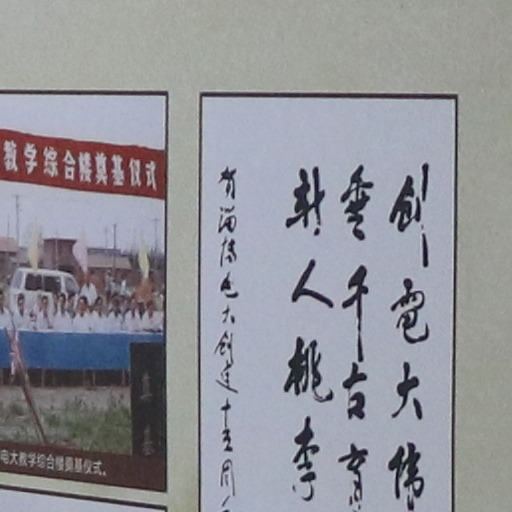 教学综合楼奠基仪式
电大教学综合楼奠基仪式。
创電大偉
垂千古育
新人桃李
贺淄博电大创建十五周年